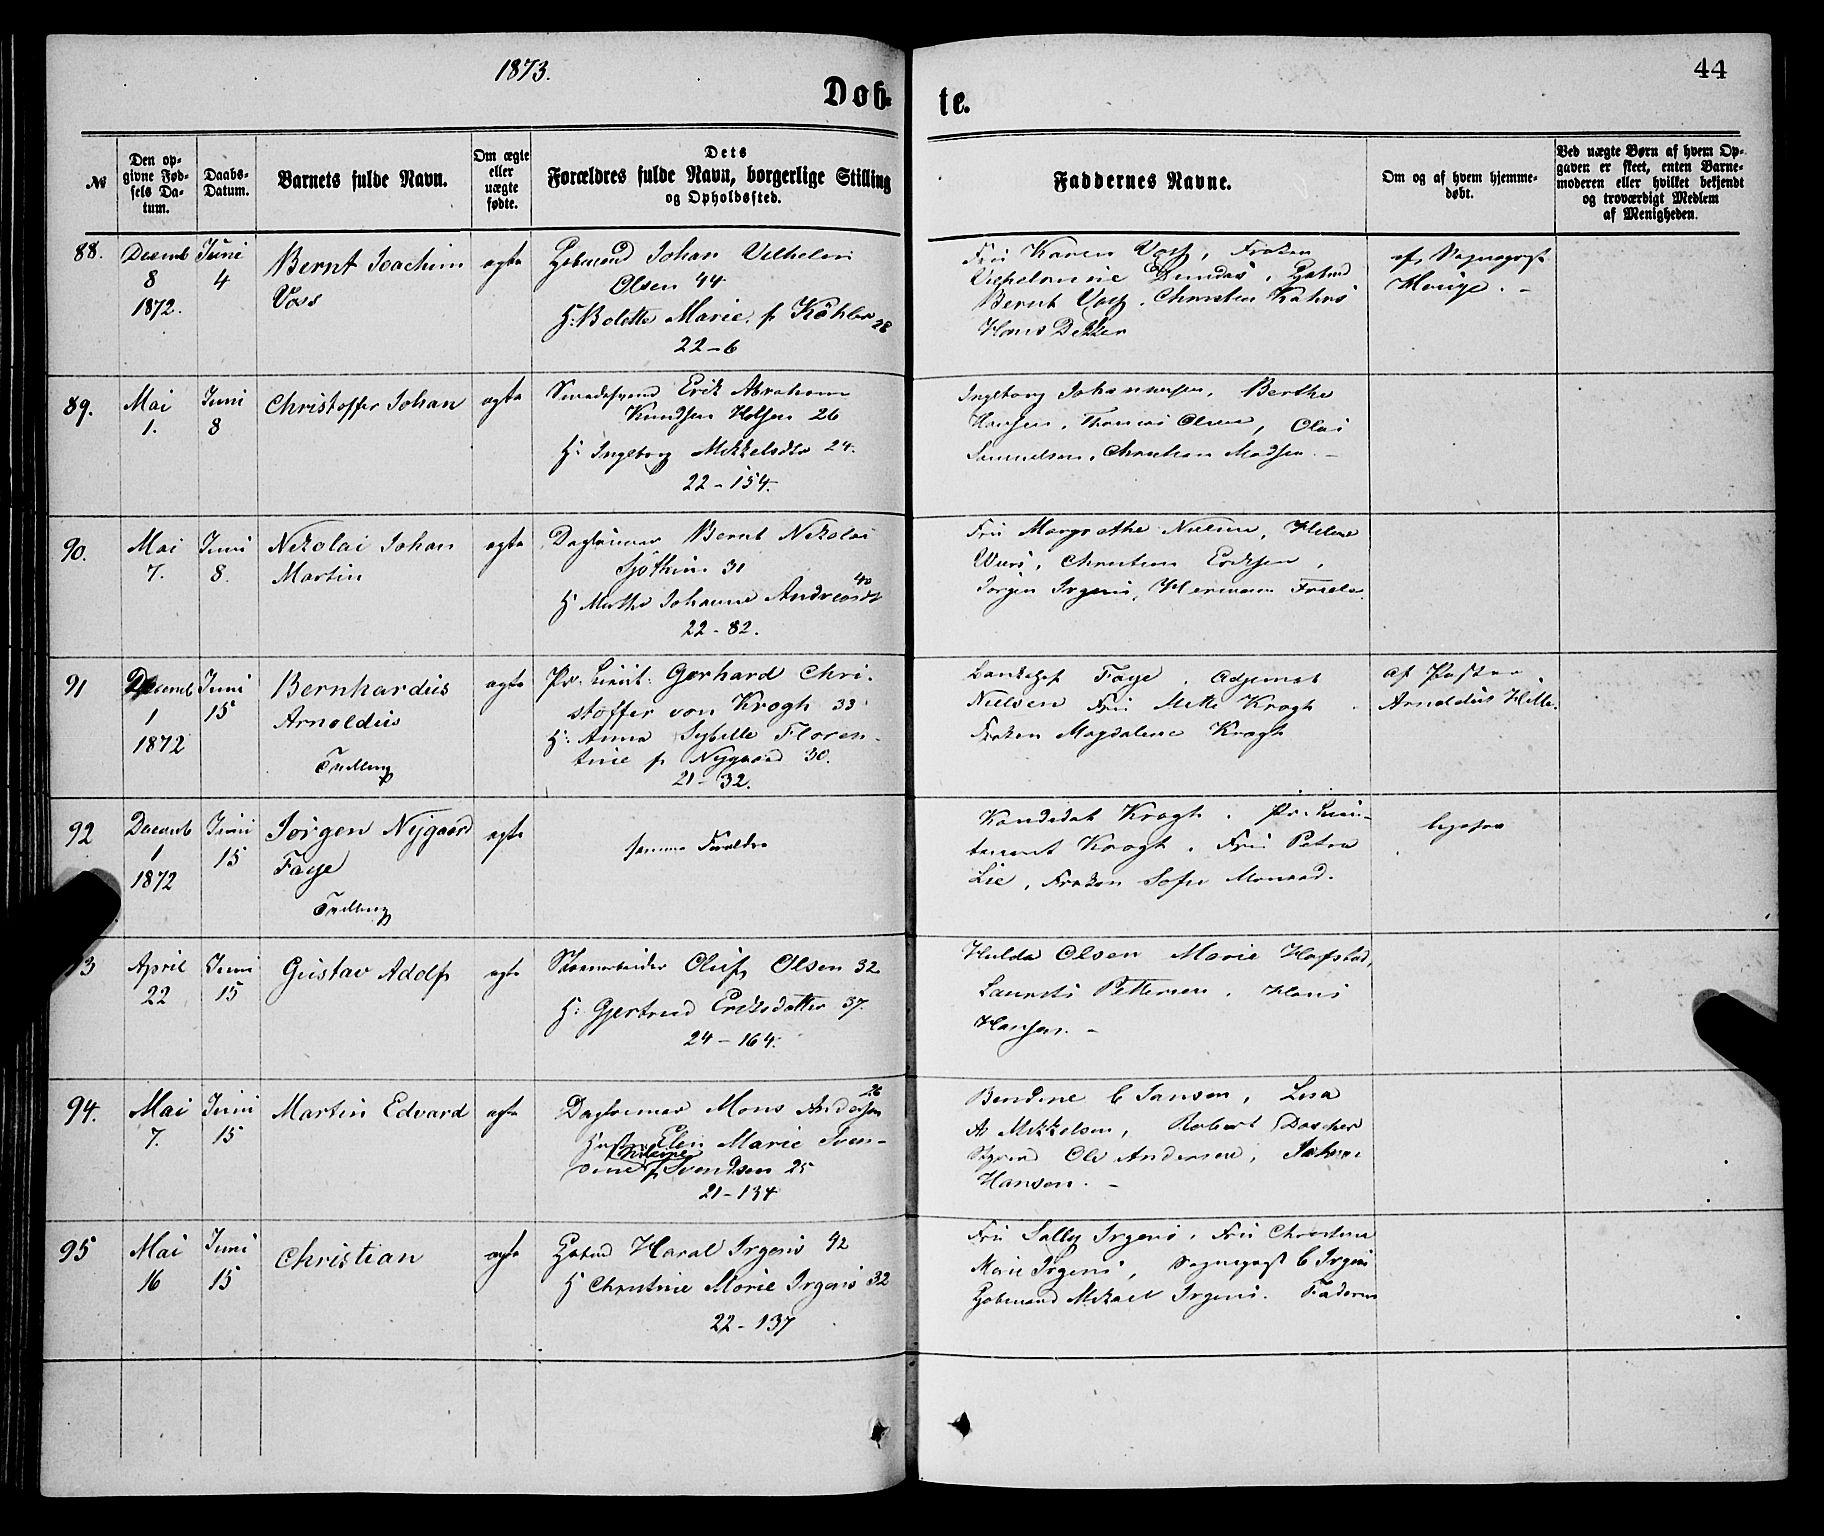 1873.
44
Døb-
te.
№
Den op-
givne Fød-
sels Da-
tum.
Daabs-
Datum.
Barnets fulde Navn.
Om ægte
eller
uægte
fødte.
Dets
Forældres fulde Navn, borgerlige Stilling
og Opholdssted.
Faddernes Navne.
Om og af hvem hjemme-
døbt.
Ved uægte Børn af hvem Op-
gaven er skeet, enten Barne-
moderen eller hvilket bekjendt
og troværdigt Medlem
af Menigheden.
88.
Decemb
8
1872.
Juni
4
Bernt Joachim
Voss
ægte
Johan Vilhelm
Olsen 44
H: Bolette Marie f Köhler 28
22-6
Fru Karen Voss, Frøken
Vilhelmine Dundas,
Bernt Voss, Christen Kahrs
Hans Dekker
af Sognepræst
89.
Mai
1.
Juni
8
Christoffer Johan
ægte
Smedesvend Erik Abraham
Knudsen 26
H: Ingeborg Mikkelsdtr 24.
22-154.
Ingeborg Johannesen, Berthe
Hansen, Thomas Olsen, Olai
Samuelsen, Christian Madsen. -
90.
Mai
7.
Juni
8.
Nikolai Johan
Martin
ægte
Dagleiner Bernt Nikolai
31
H Marthe Johanne Andreasdt 40
22-82.
Fru Margrethe Nielsen, Helene
Christian Eriksen,
Jørgen Irgens, Herman
91
Decemb
1
1872
Juni
15
Bernhardus
Arnoldus
Tvilling
ægte
Pr. Lieut. Gerhard Chri-
stoffer von Krogh 33
H: Anna Sybille Floren-
tine f Nygaard 30.
21-32.
Faye, Adjunct
Nielsen Fru Mette Krogh
Frøken Magdalene Krogh
af Pastor
Arnoldus Hille.
92
Decemb
1
1872
Juni
15
Jørgen Nygaard
Faye
Tvilling
ægte
samme Forældre
Kandidat Krogh, Pr. Lieu-
tenant Krogh, Fru Petra
Lie, Frøken Sofie Monrad.
ligesaa
3
April
22
Juni
15
Gustav Adolf
ægte
Oluf Olsen 32
H: Gjertrud Eriksdatter 37.
24-164.
Hulda Olsen Marie Hofstad,
Laurits Pettersen, Hans
Hansen. -
94.
Mai
7.
Juni
15
Martin Edvard
ægte
Dagleiner Mons Andersen 26
Hustru Elen Marie
f Svendsen 25
21-134
Bendine C Jansen, Lisa
A Mikkelsen, Robert Døscher
Ole Andersen, Johan
Hansen. -
95
Mai
16
Juni
15
Christian
ægte
Haral Irgens 42
H Christine Marie Irgens 32
22-137
Fru Sally Irgens, Fru Christine
Marie Irgens, Sognepræst C Irgens
Mikael Irgens. Faderen